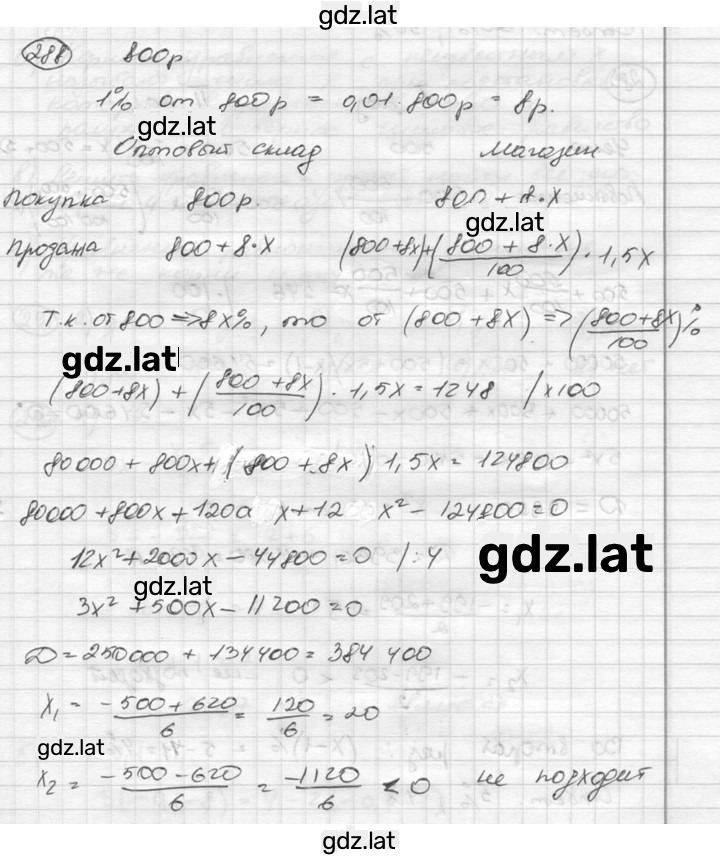 gdz.lat
288 800р
1% от 800р = 0,01·800р = 8р.
gdz.lat
Оптовый склад Магазин
Покупка 800р. 800 + 8·X
gdz.lat
Продажа 800+8·X (800+8x)+(800 + 8·X/100)·1,5X
Т.к. от 800 => 8X%, то от (800 + 8X) => (800+8X/100)%
gdz.lat
(800+8X) + (800 + 8X/100)·1,5X = 1248 /×100
80000 + 800X + (800 + 8X) 1,5X = 124800
80000+800X+1200 X+12 X² - 124800=0
gdz.lat
12X²+2000X - 44800=0 /:4
gdz.lat
3X² +500X - 11200=0
D = 250000 + 134400 = 384 400
X₁ = -500+620/6 = 120/6 = 20
gdz.lat
X₂ = -500-620/6 = -1120/6 < 0 не подходит
gdz.lat